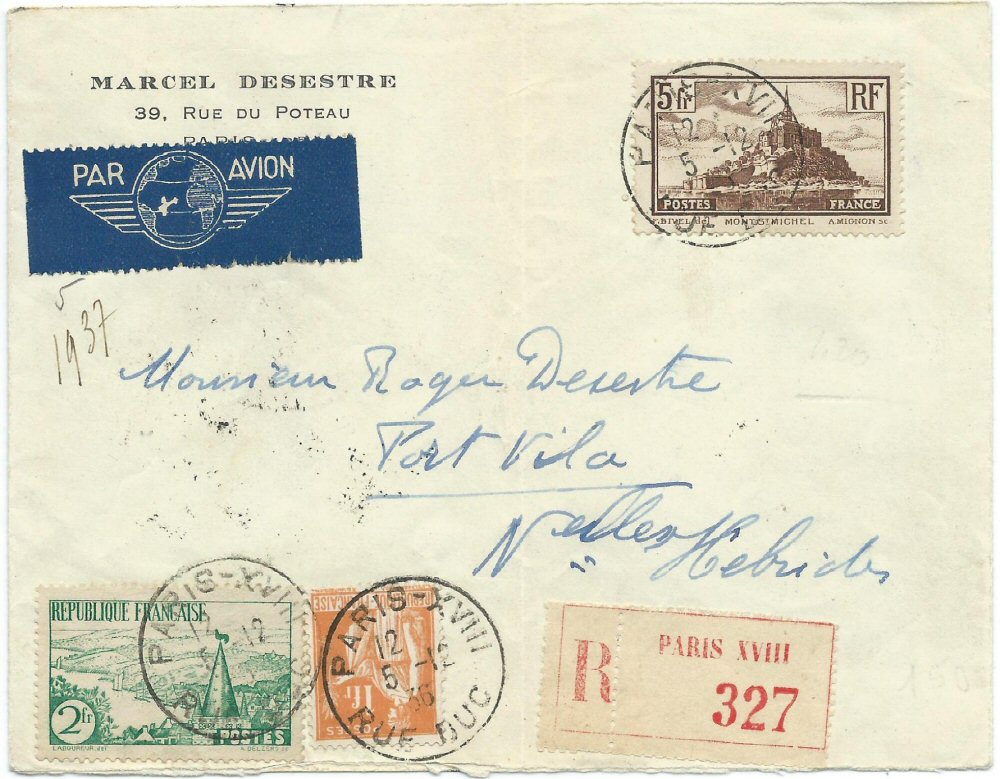 MARCEL DESESTRE
39, RUE DU POTEAU
PARIS
PAR AVION
5
1937
5fr RF
POSTES FRANCE
MONT ST MICHEL A.MIGNON SC
PARIS-XVIII
12
5 -12
RUE DUC
Monsieur Roger Desestre
Port Vila
Nelles Hebrides
REPUBLIQUE FRANÇAISE
2fr
POSTES
LABOUREUR del A. DELZERS sc
PARIS-XVIII
12
-12
1fr
PARIS-XVIII
12
5 -12
36
RUE DUC
R PARIS XVIII
327